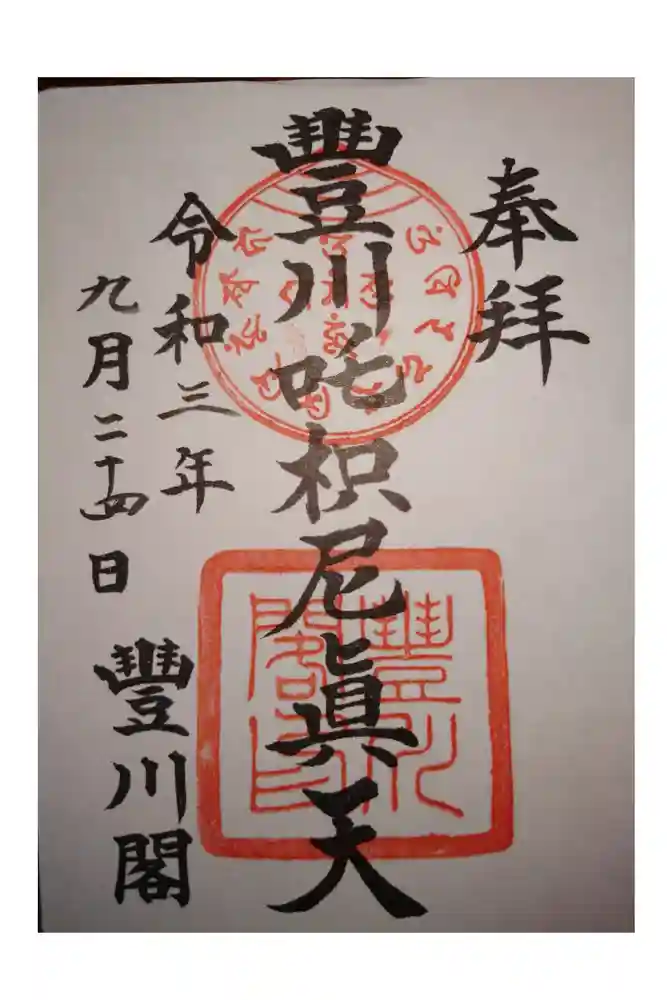 奉拝
豐川吒枳尼眞天
令和三年
九月二十四日
豐川閣
豐川閣印